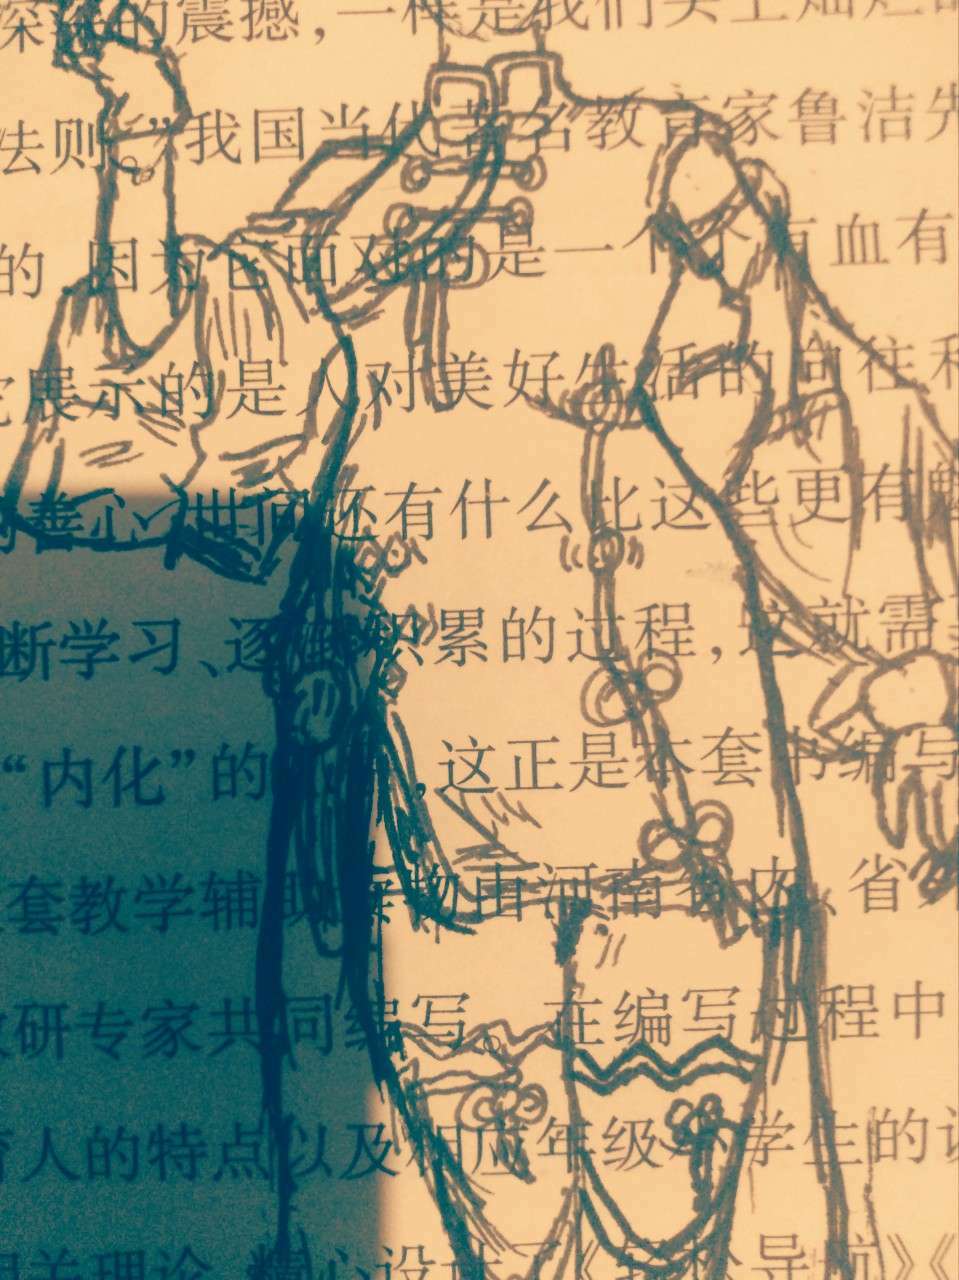 深深的震撼，一样是我们头上灿烂的
法则。”我国当代著名教育家鲁洁先
的 因为它面对的是一个个有血有
展示的是人对美好生活的向往和
善心 世间还有什么比这些更有
断学习、逐步积累的过程，这就需
“内化”的 ，这正是本套书编写
套教学辅助读物由河南省内、省外
研专家共同编写。在编写过程中
育人的特点以及相应年级 学生的认
相关理论 精心设计了《 导航》《